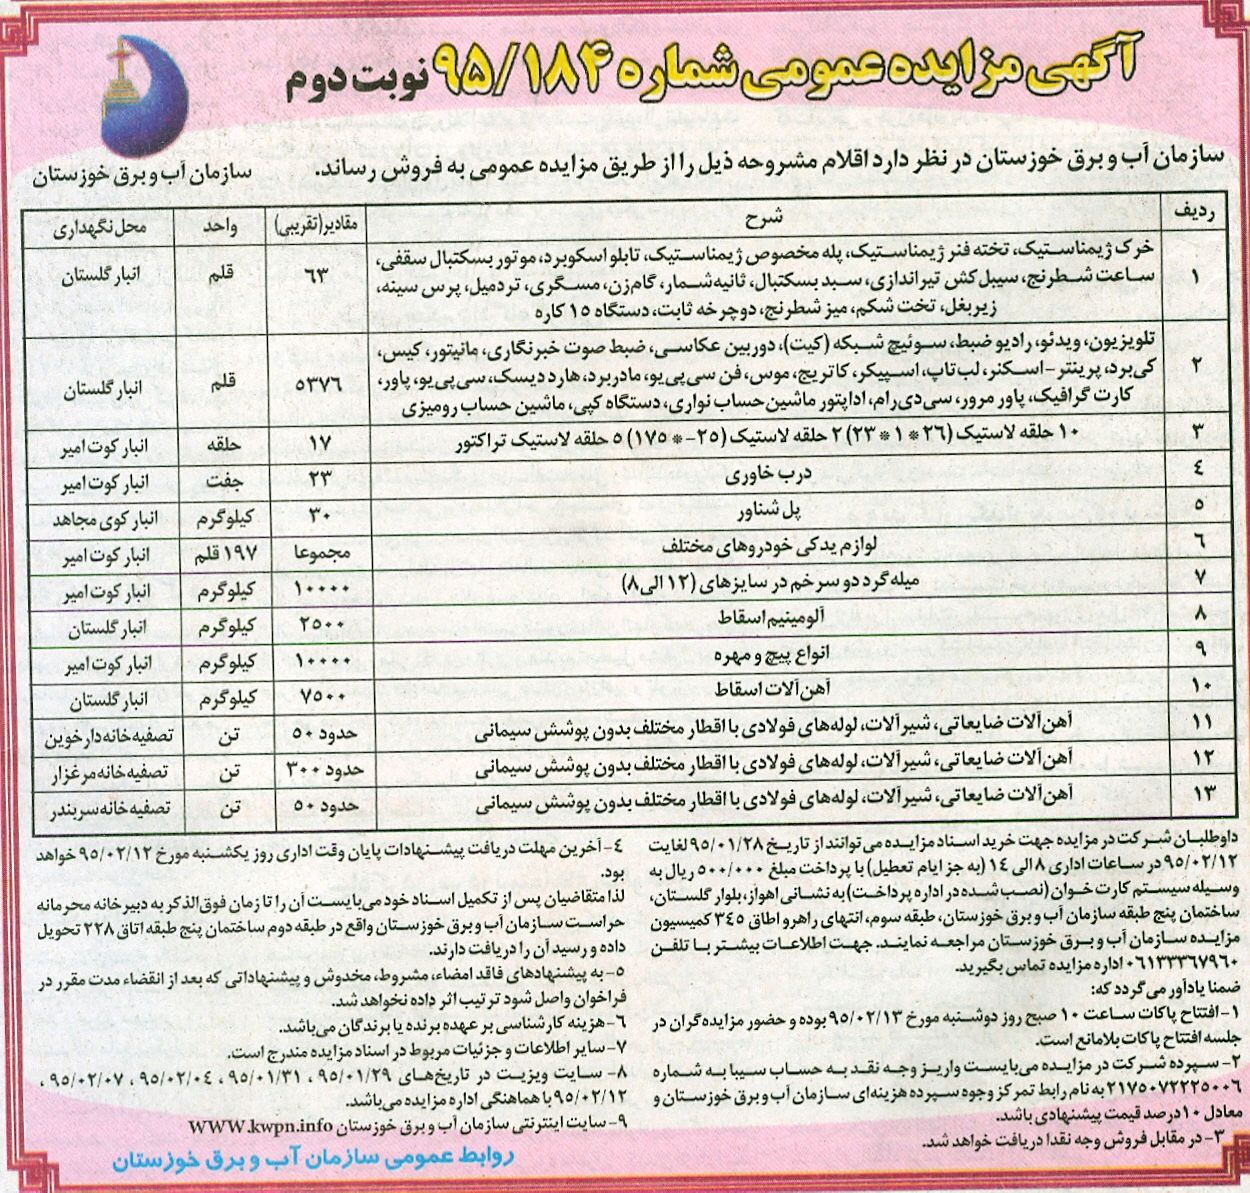 آگهی مزایده عمومی شماره ۹۵/۱۸۴ نوبت دوم
سازمان آب و برق خوزستان در نظر دارد اقلام مشروحه ذیل را از طریق مزایده عمومی به فروش رساند.
سازمان آب و برق خوزستان
ردیف شرح مقادیر(تقریبی) واحد محل نگهداری
۱ خرک ژیمناستیک، تخته فنر ژیمناستیک، پله مخصوص ژیمناستیک، تابلو اسکوبرد، موتور بسکتبال سقفی،
ساعت شطرنج، سیبل کش تیراندازی، سبد بسکتبال، ثانیه شمار، گام زن، مسگری، تردمیل، پرس سینه،
زیربغل، تخت شکم، میز شطرنج، دوچرخه ثابت، دستگاه ۱۵ کاره ۶۳ قلم انبار گلستان
۲ تلویزیون، ویدئو، رادیو ضبط، سوئیچ شبکه (کیت)، دوربین عکاسی، ضبط صوت خبرنگاری، مانیتور، کیس،
کی برد، پرینتر -اسکنر، لب تاپ، اسپیکر، کاتریج، موس، فن سی پی یو، مادربرد، هارد دیسک، سی پی یو، پاور،
کارت گرافیک، پاور مرور، سی دی رام، اداپتور ماشین حساب نواری، دستگاه کپی، ماشین حساب رومیزی ۵۳۷۶ قلم انبار گلستان
۳ ۱۰ حلقه لاستیک (۲۶ * ۱ * ۲۳) ۲ حلقه لاستیک (۲۵- * ۱۷۵) ۵ حلقه لاستیک تراکتور ۱۷ حلقه انبار کوت امیر
۴ درب خاوری ۲۳ جفت انبار کوت امیر
۵ پل شناور ۳۰ کیلوگرم انبار کوی مجاهد
۶ لوازم یدکی خودروهای مختلف مجموعا ۱۹۷ قلم انبار کوت امیر
۷ میله گرد دو سر خم در سایزهای (۱۲ الی ۸) ۱۰۰۰۰ کیلوگرم انبار کوت امیر
۸ آلومینیم اسقاط ۲۵۰۰ کیلوگرم انبار گلستان
۹ انواع پیچ و مهره ۱۰۰۰۰ کیلوگرم انبار کوت امیر
۱۰ آهن آلات اسقاط ۷۵۰۰ کیلوگرم انبار گلستان
۱۱ آهن آلات ضایعاتی، شیرآلات، لوله های فولادی با اقطار مختلف بدون پوشش سیمانی حدود ۵۰ تن تصفیه خانه دارخوین
۱۲ آهن آلات ضایعاتی، شیرآلات، لوله های فولادی با اقطار مختلف بدون پوشش سیمانی حدود ۳۰۰ تن تصفیه خانه مرغزار
۱۳ آهن آلات ضایعاتی، شیرآلات، لوله های فولادی با اقطار مختلف بدون پوشش سیمانی حدود ۵۰ تن تصفیه خانه سربندر
داوطلبان شرکت در مزایده جهت خرید اسناد مزایده می توانند از تاریخ ۹۵/۰۱/۲۸ لغایت
۹۵/۰۲/۱۲ در ساعات اداری ۸ الی ۱۴ (به جز ایام تعطیل) با پرداخت مبلغ ۵۰۰/۰۰۰ ریال به
وسیله سیستم کارت خوان (نصب شده در اداره پرداخت) به نشانی اهواز، بلوار گلستان،
ساختمان پنج طبقه سازمان آب و برق خوزستان، طبقه سوم، انتهای راهرو اطاق ۳۴۵ کمیسیون
مزایده سازمان آب و برق خوزستان مراجعه نمایند. جهت اطلاعات بیشتر با تلفن
۰۶۱۳۳۳۶۷۹۶۰ اداره مزایده تماس بگیرید.
ضمنا یادآور می گردد که:
۱- افتتاح پاکات ساعت ۱۰ صبح روز دوشنبه مورخ ۹۵/۰۲/۱۳ بوده و حضور مزایده گران در
جلسه افتتاح پاکات بلامانع است.
۲- سپرده شرکت در مزایده می بایست واریز وجه نقد به حساب سیبا به شماره
۲۱۷۵۰۷۲۲۲۵۰۰۶ به نام رابط تمرکز وجوه سپرده هزینه ای سازمان آب و برق خوزستان و
معادل ۱۰درصد قیمت پیشنهادی باشد.
۳- در مقابل فروش وجه نقدا دریافت خواهد شد.
۴- آخرین مهلت دریافت پیشنهادات پایان وقت اداری روز یکشنبه مورخ ۹۵/۰۲/۱۲ خواهد
بود.
لذا متقاضیان پس از تکمیل اسناد خود می بایست آن را تا زمان فوق الذکر به دبیرخانه محرمانه
حراست سازمان آب و برق خوزستان واقع در طبقه دوم ساختمان پنج طبقه اتاق ۲۲۸ تحویل
داده و رسید آن را دریافت دارند.
۵- به پیشنهادهای فاقد امضاء، مشروط، مخدوش و پیشنهاداتی که بعد از انقضاء مدت مقرر در
فراخوان واصل شود ترتیب اثر داده نخواهد شد.
۶- هزینه کارشناسی بر عهده برنده یا برندگان می باشد.
۷- سایر اطلاعات و جزئیات مربوط در اسناد مزایده مندرج است.
۸- سایت ویزیت در تاریخ های ۹۵/۰۱/۲۹ ، ۹۵/۰۱/۳۱ ، ۹۵/۰۲/۰۴ ، ۹۵/۰۲/۰۷ ،
۹۵/۰۲/۱۲ با هماهنگی اداره مزایده می باشد.
۹- سایت اینترنتی سازمان آب و برق خوزستان WWW.kwpn.info
روابط عمومی سازمان آب و برق خوزستان